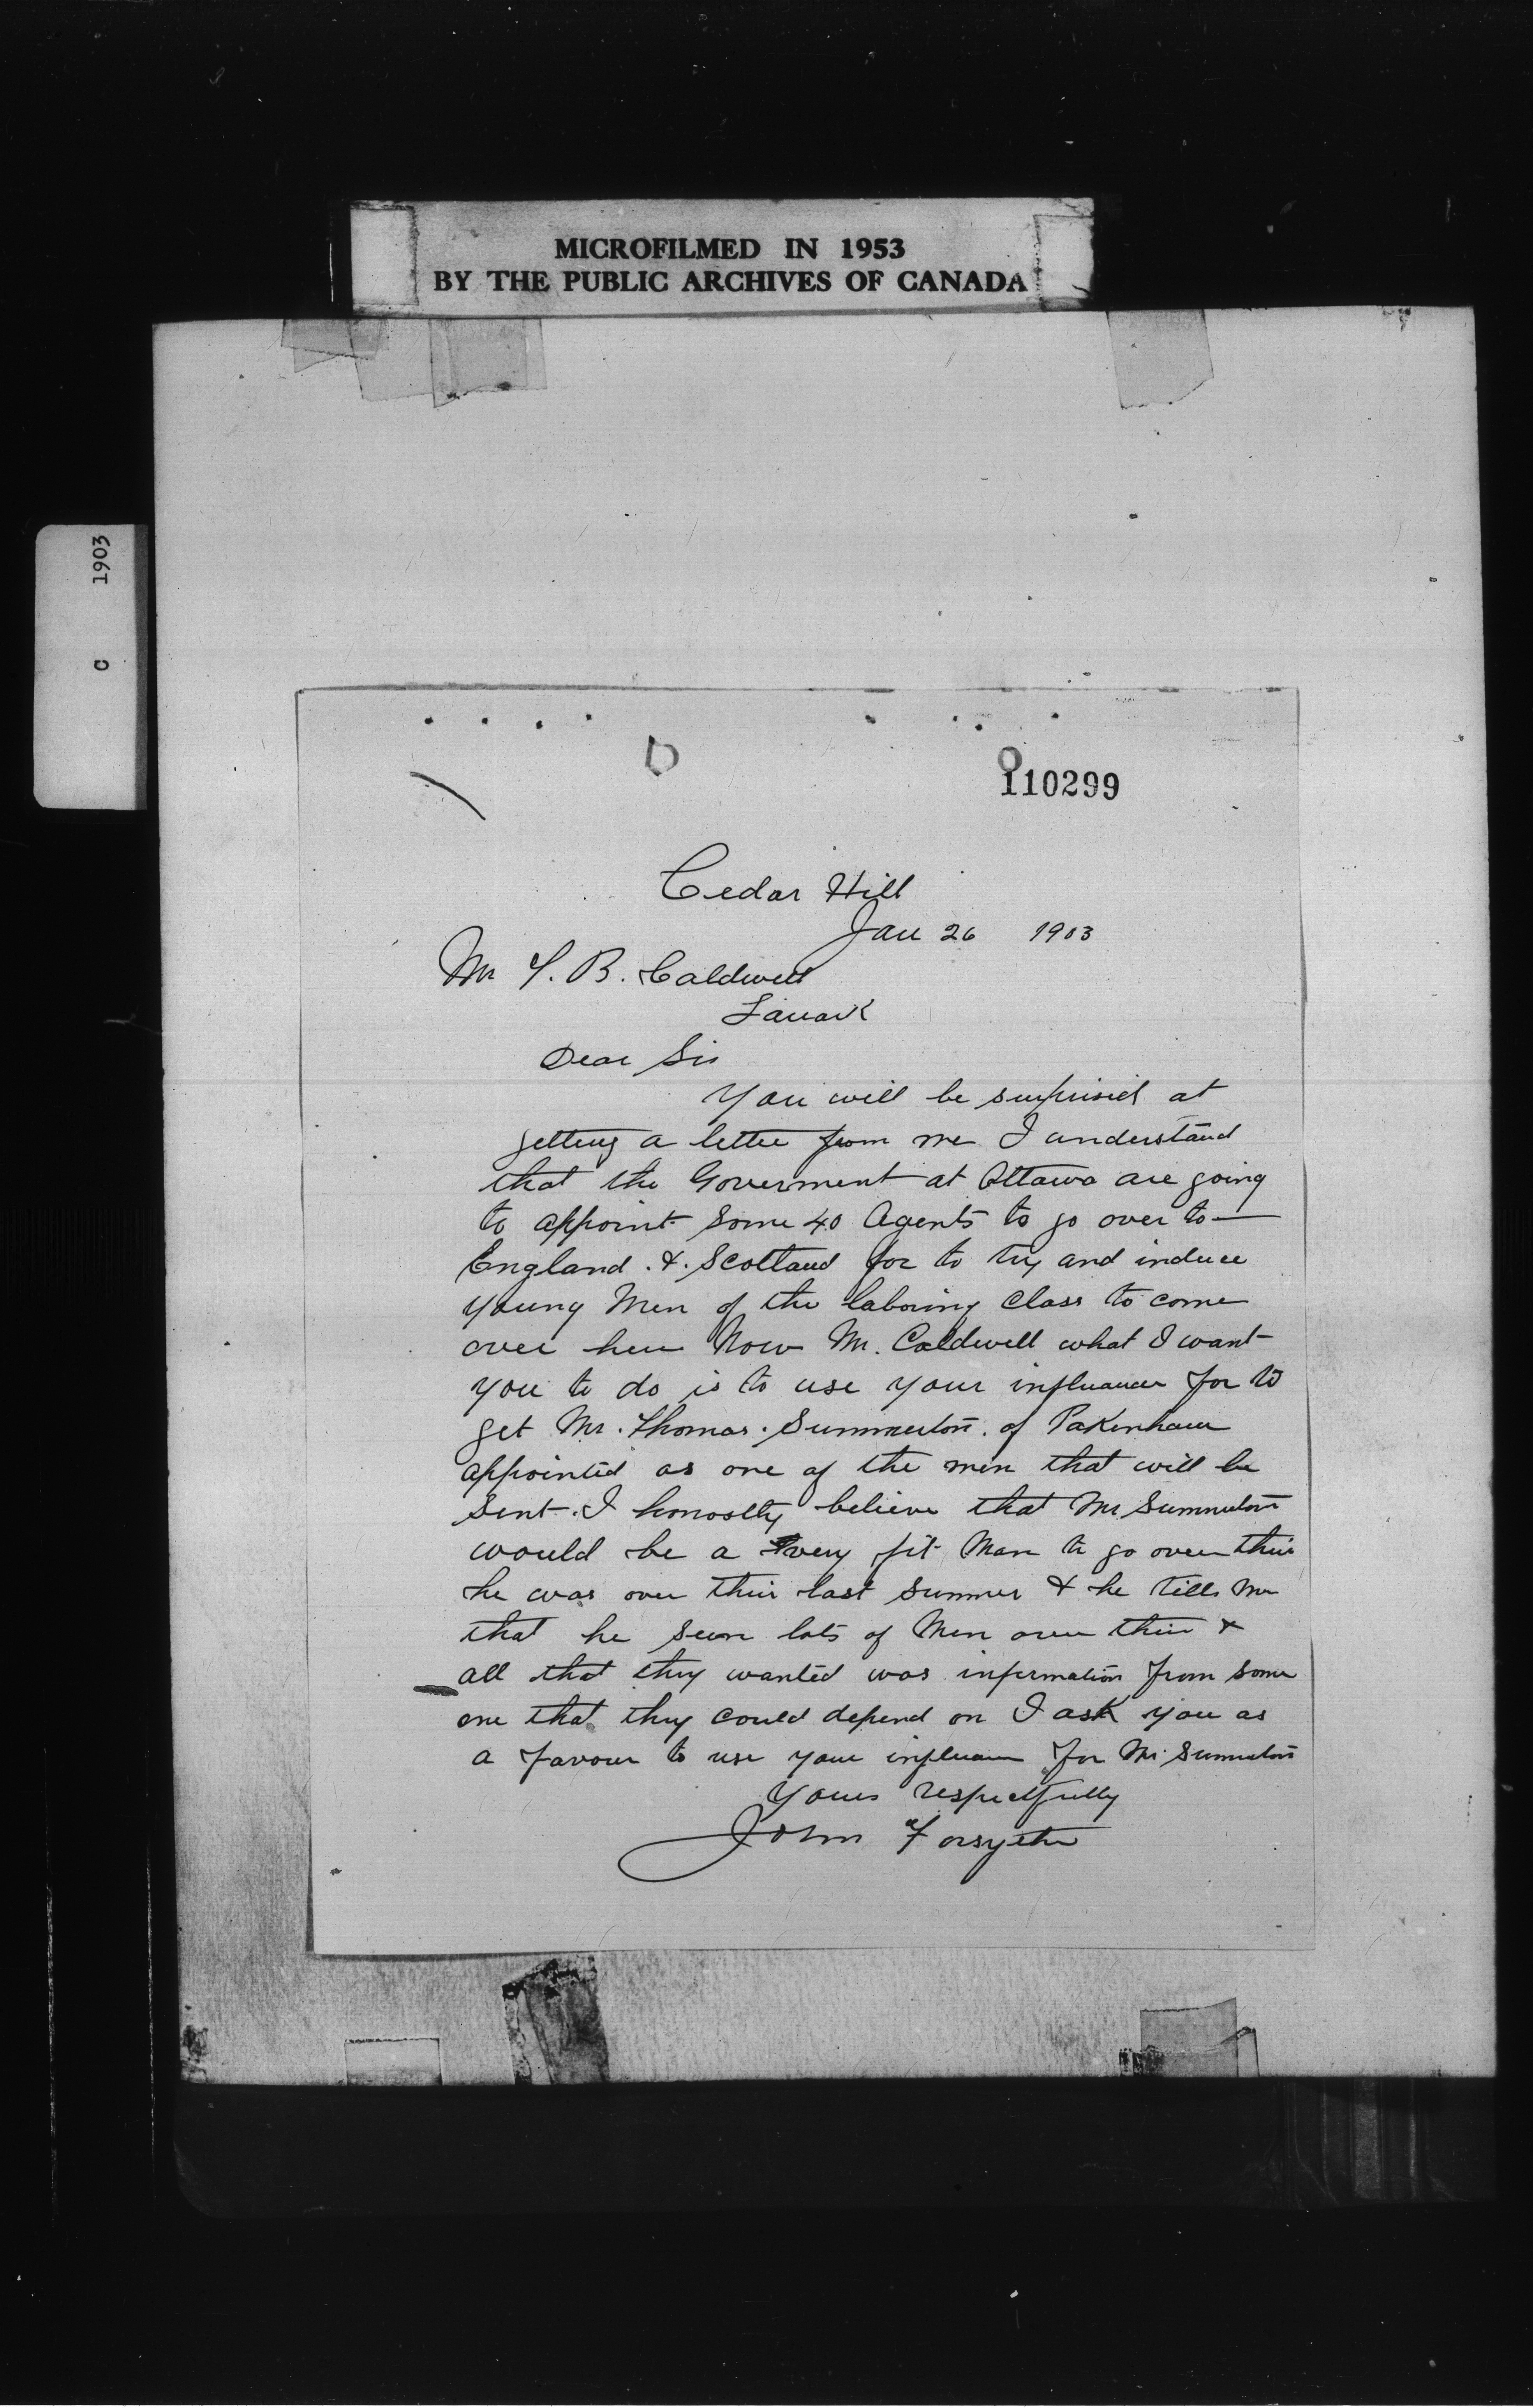 MICROFILMED IN 1953
BY THE PUBLIC ARCHIVES OF CANADA
C 1903
110299
Cedar Hill
Jan 26 1903
Mr T. B. Caldwell
Lanark
Dear Sir
You will be surprised at
getting a letter from me I understand
that the Goverment at Ottawa are going
to appoint some 40 Agents to go over to
England . & . Scotland for to try and induce
young Men of the laboring Class to come
over here Now Mr. Caldwell what I want
you to do is to use your influance for to
get Mr. Thomas . Summerton . of Pakenham
appointed as one of the men that will be
sent . I honostly believe that Mr Summerton
would be a very fit Man to go over their
he was over their last Summer & he tells me
that he seen lots of Men over their &
all that they wanted was information from some
one that they could depend on I ask you as
a favour to use your influance for Mr Summerton
Yours respectfully
John Forsythe